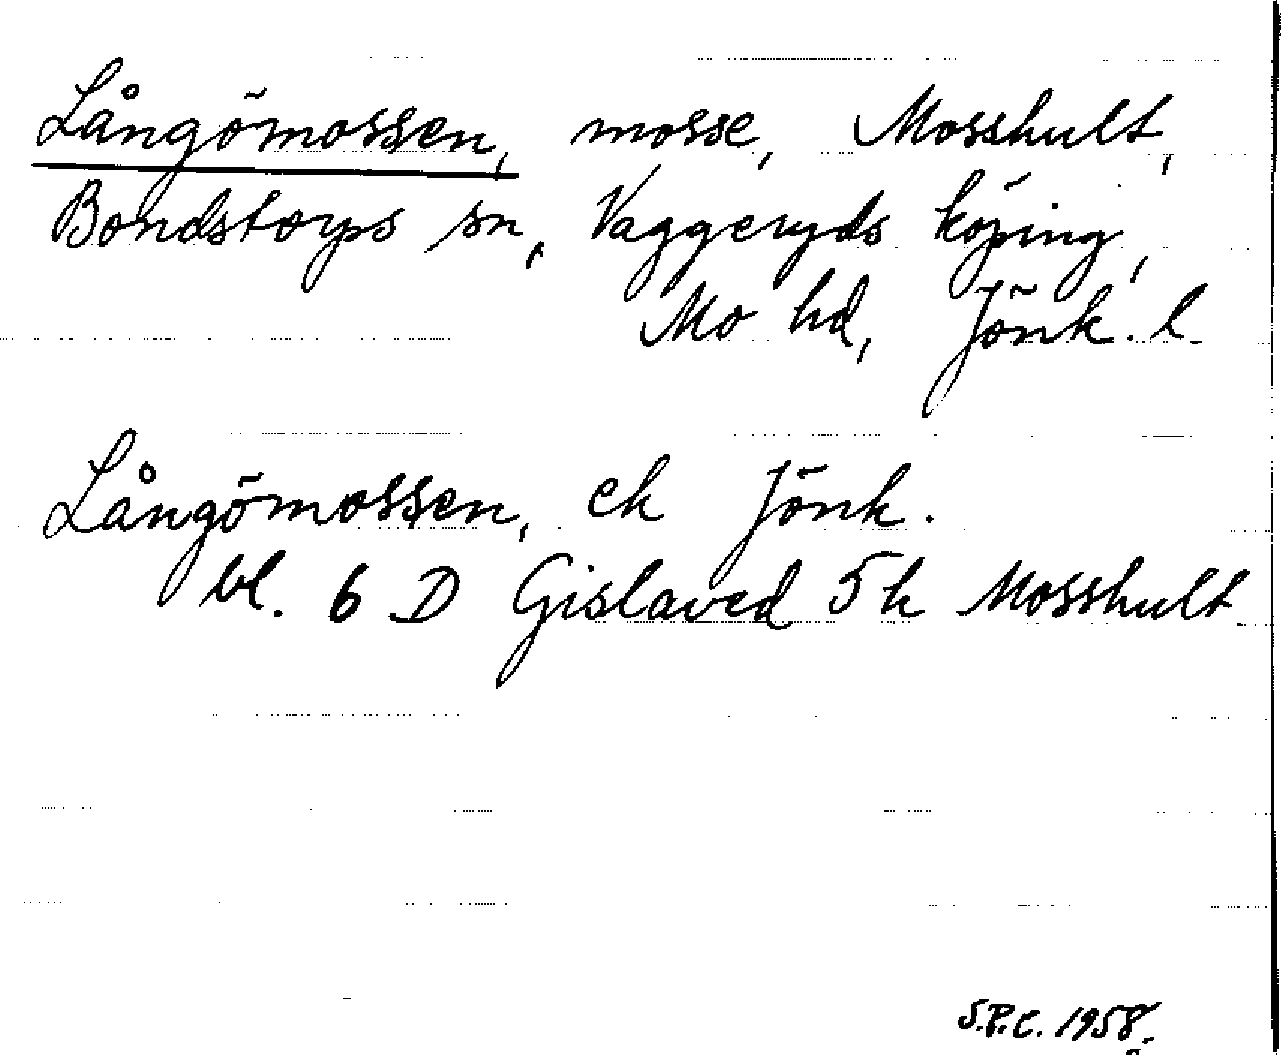 Långömossen, mosse, Mosshult,
Bondstorps sn, Vaggeryds köping,
Mo hd, Jönk. l.
Långömossen, ek Jönk.
bl. 6 D Gislaved 5 h Mosshult
S.P.C. 1958.